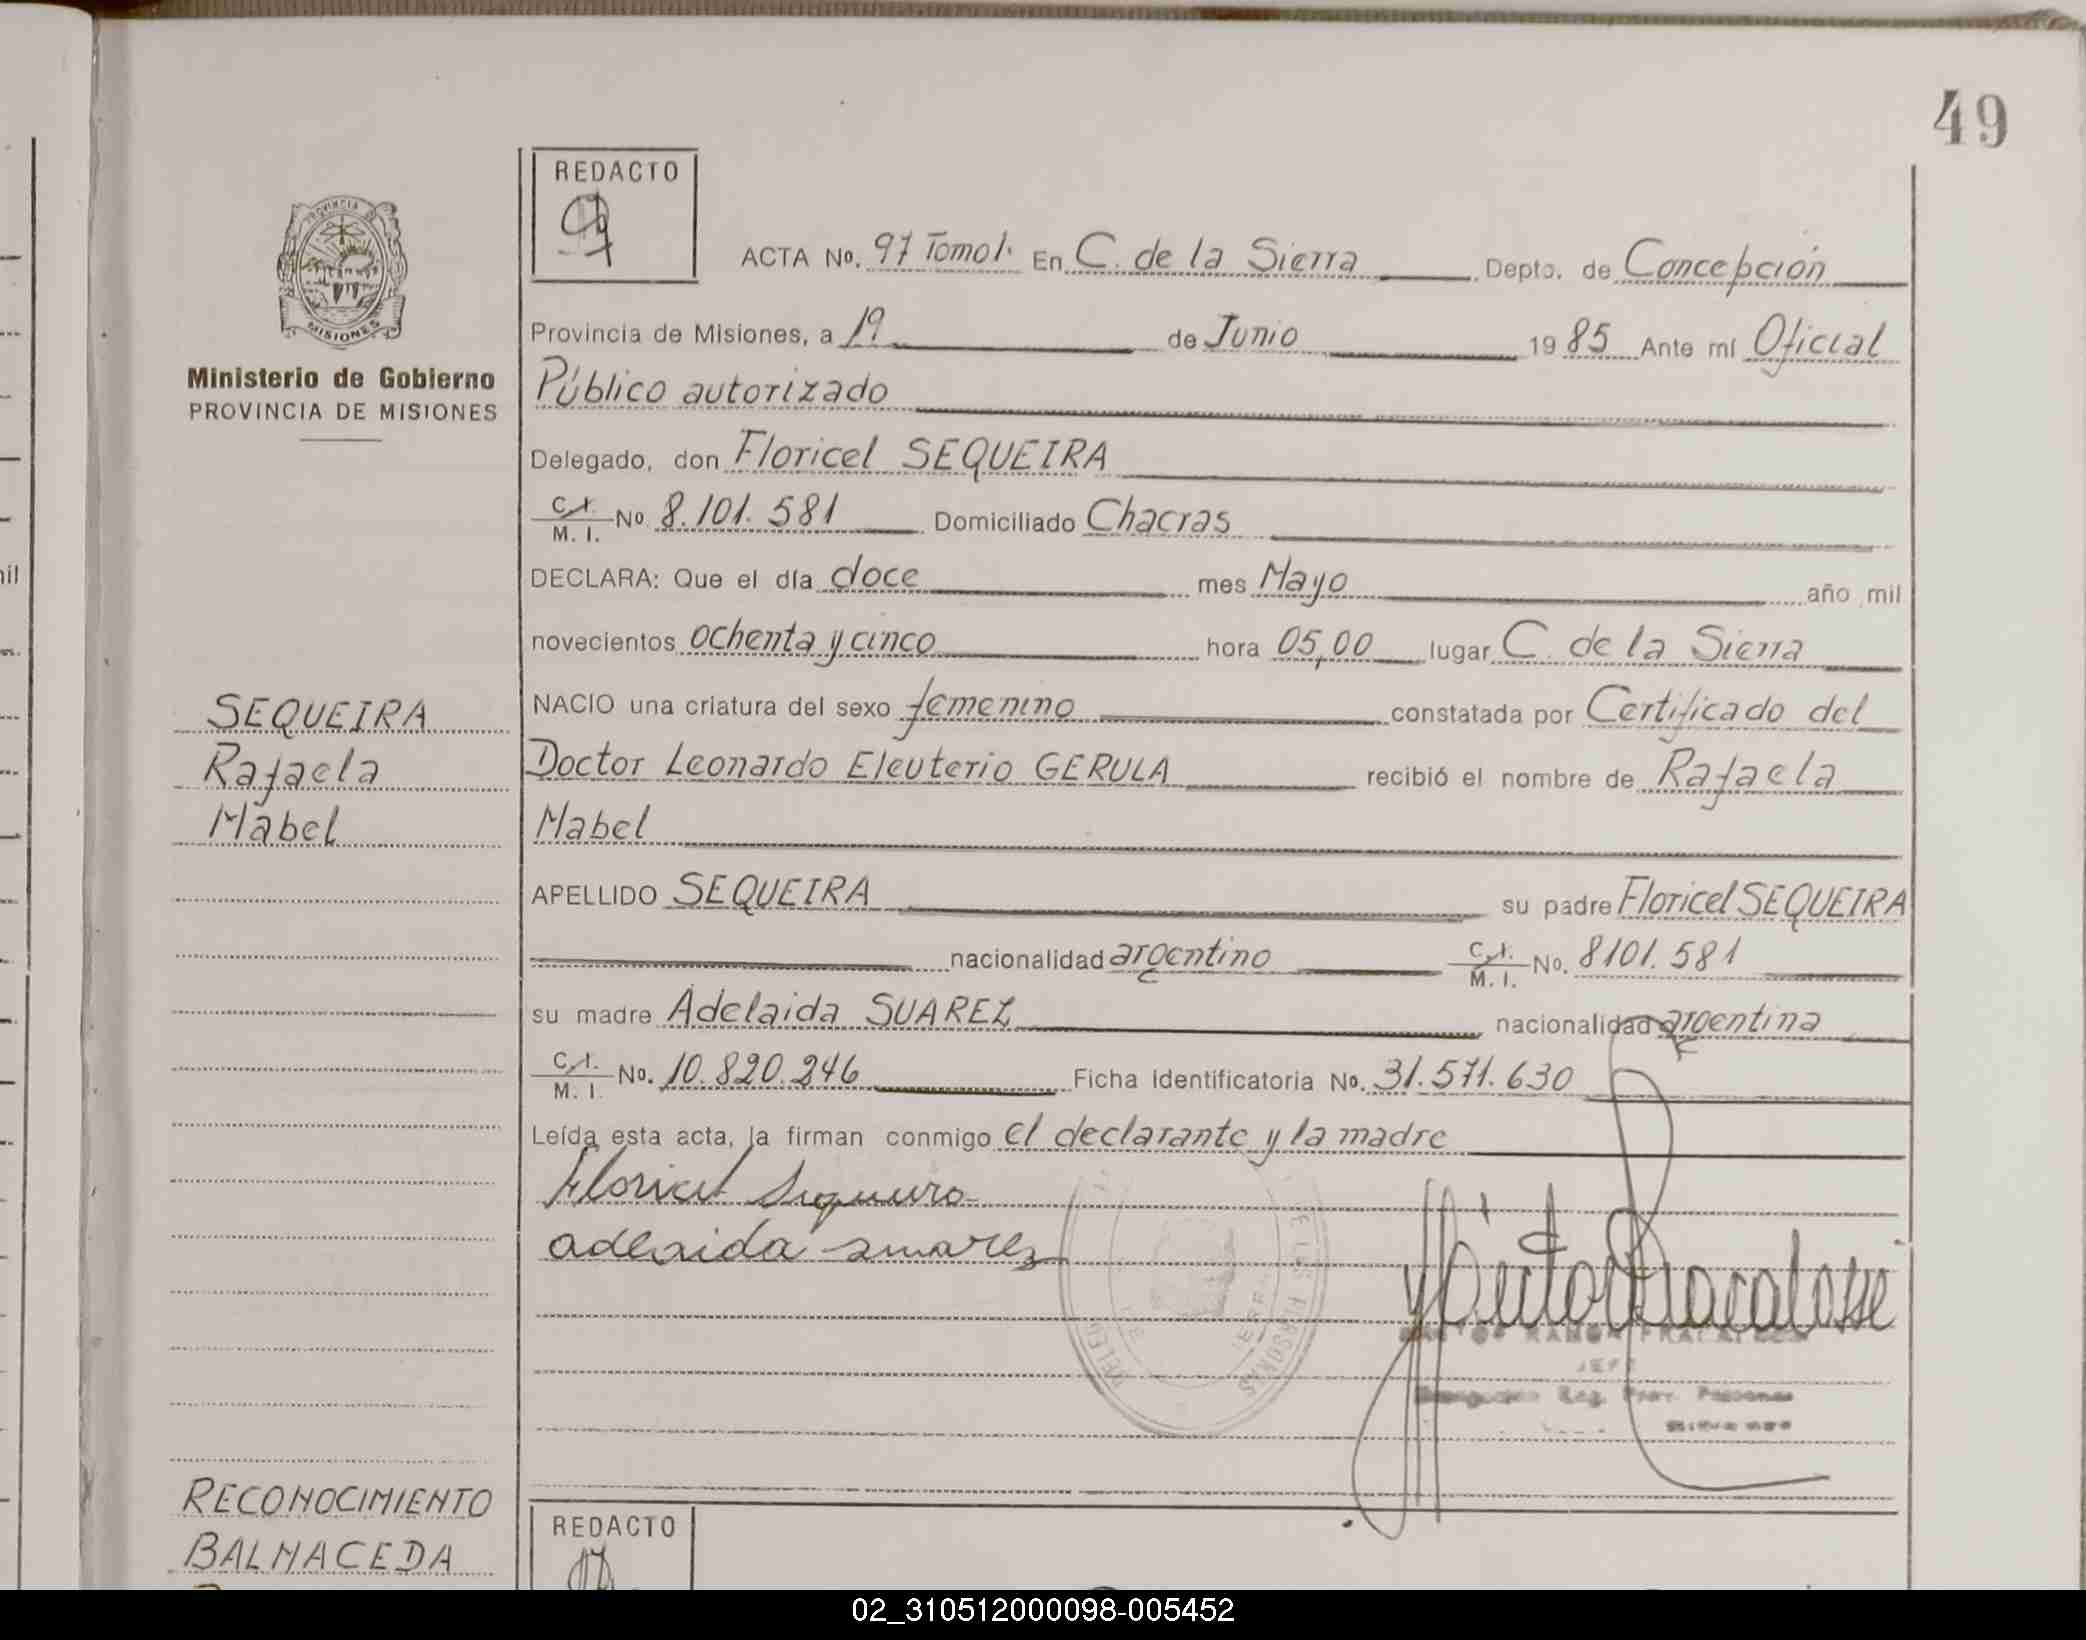 49
REDACTO
PROVINCIA DE
MISIONES
Ministerio de Gobierno
PROVINCIA DE MISIONES
ACTA No. 97 Tomo I. En C. de la Sierra Depto. de Concepción
Provincia de Misiones, a 19 de Junio 1985 Ante mí Oficial
Público autorizado
Delegado, don Floricel SEQUEIRA
C.I. M. I. No 8.101.581 Domiciliado Chacras
DECLARA: Que el día doce mes Mayo año mil
novecientos ochenta y cinco hora 05,00 lugar C. de la Sierra
NACIO una criatura del sexo femenino constatada por Certificado del
Doctor Leonardo Eleuterio GERULA recibió el nombre de Rafaela
Mabel
SEQUEIRA
Rafaela
Mabel
APELLIDO SEQUEIRA su padre Floricel SEQUEIRA
nacionalidad argentino C.I. M. I. No. 8101.581
su madre Adelaida SUAREZ nacionalidad argentina
C.I. M. I. No. 10.820.246 Ficha Identificatoria No. 31.571.630
Leída esta acta, la firman conmigo el declarante y la madre
Floricel Sequeira
adelaida suarez
PERSONAS
RAMON FRACALOSSI
JEFE
Reg. Prov. Personas
RECONOCIMIENTO
BALMACEDA
REDACTO
02_310512000098-005452